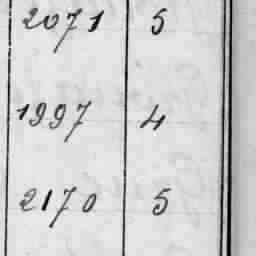 2071 5
1997 4
2170 5